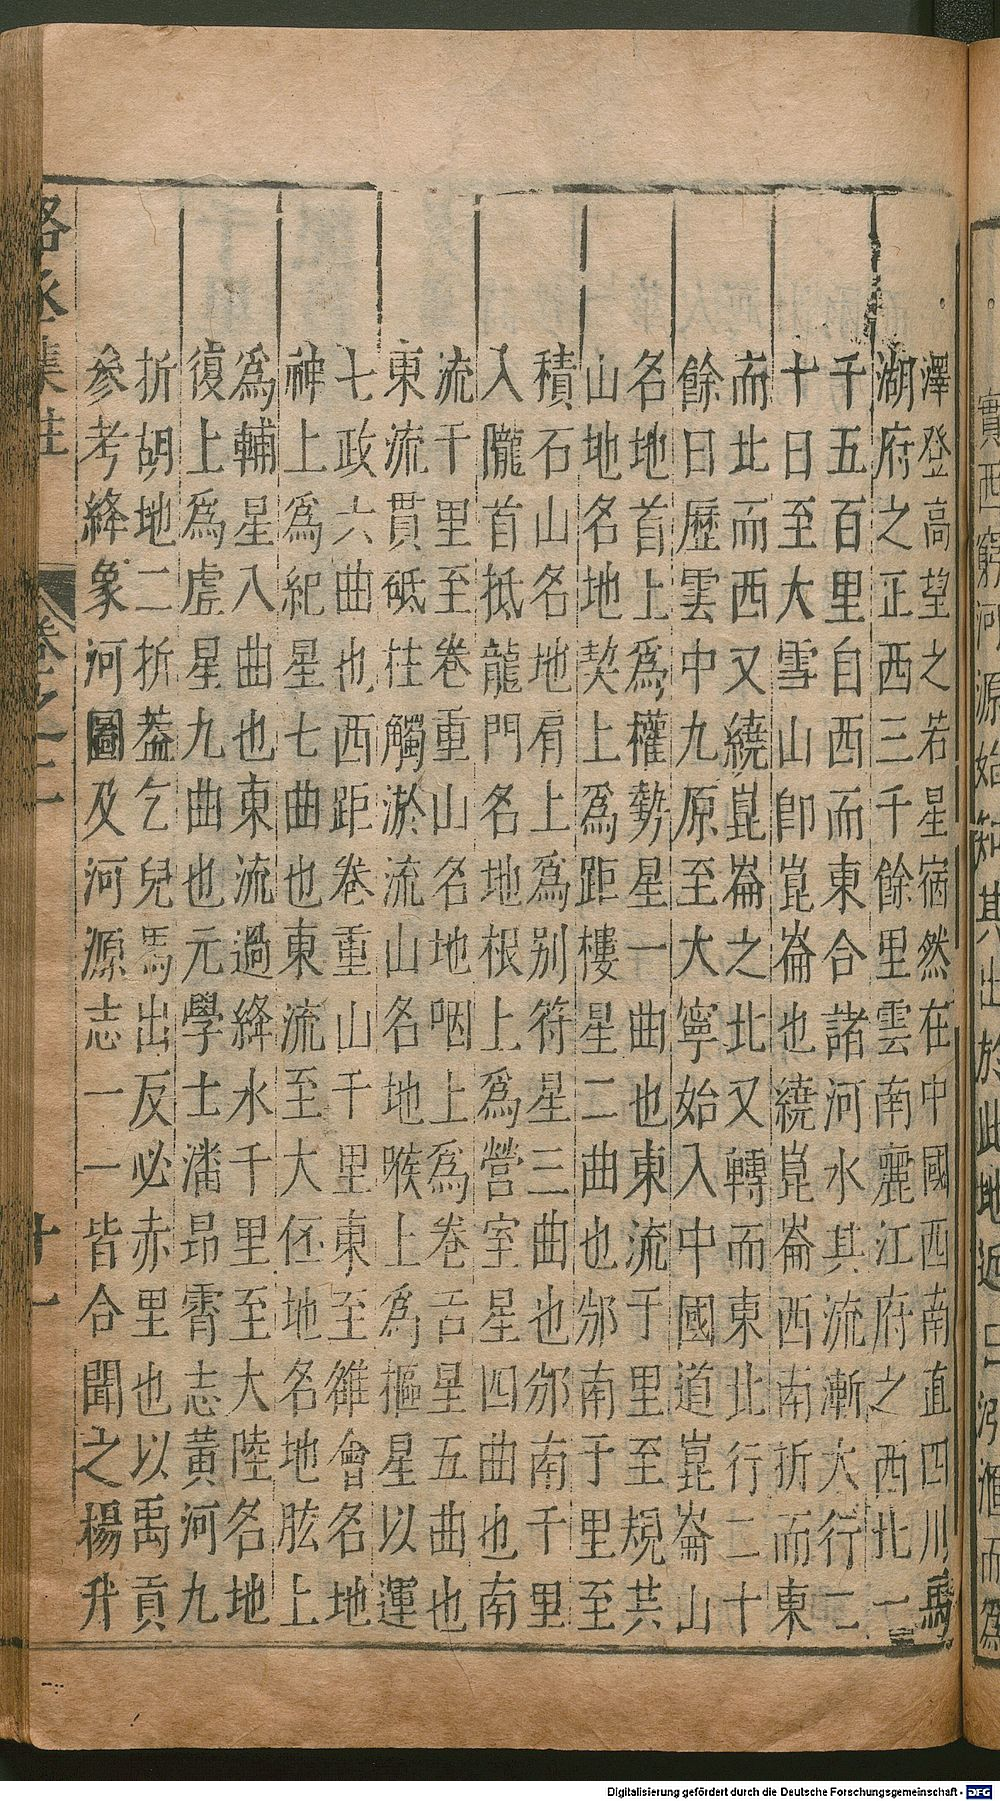 實西窮河源始知其出於此地近□汋滙而爲
澤登高望之若星宿然在中國西南直四川馬
湖府之正西三千餘里雲南麗江府之西北一
千五百里自西而東合諸河水其流漸大行二
十日至大雪山卽崑崙也繞崑崙西南折而東
而北而西又繞崑崙之北又轉而東北行二十
餘日歷雲中九原至大寧始入中國道崑崙山
名地首上爲權勢星一曲也東流于里至規共
山地名地契上爲距樓星二曲也邠南于里至
積石山名地肩上爲别符星三曲也邠南千里
入隴首抵龍門名地根上爲營室星四曲也南
流干里至卷重山名地咽上爲卷舌星五曲也
東流貫砥柱觸淤流山名地喉上爲樞星以運
七政六曲也西距卷重山千里東至雒會名地
神上爲紀星七曲也東流至大伾地名地肱上
爲輔星八曲也東流過絳水千里至大陸名地
復上爲虗星九曲也元學士潘昻霄志黄河九
折胡地二折葢乞兒馬出反必赤里也以禹貢
參考絳象河圖及河源志一一皆合聞之楊升
卷之二
十一
Digitalisierung gefördert durch die Deutsche Forschungsgemeinschaft - DFG